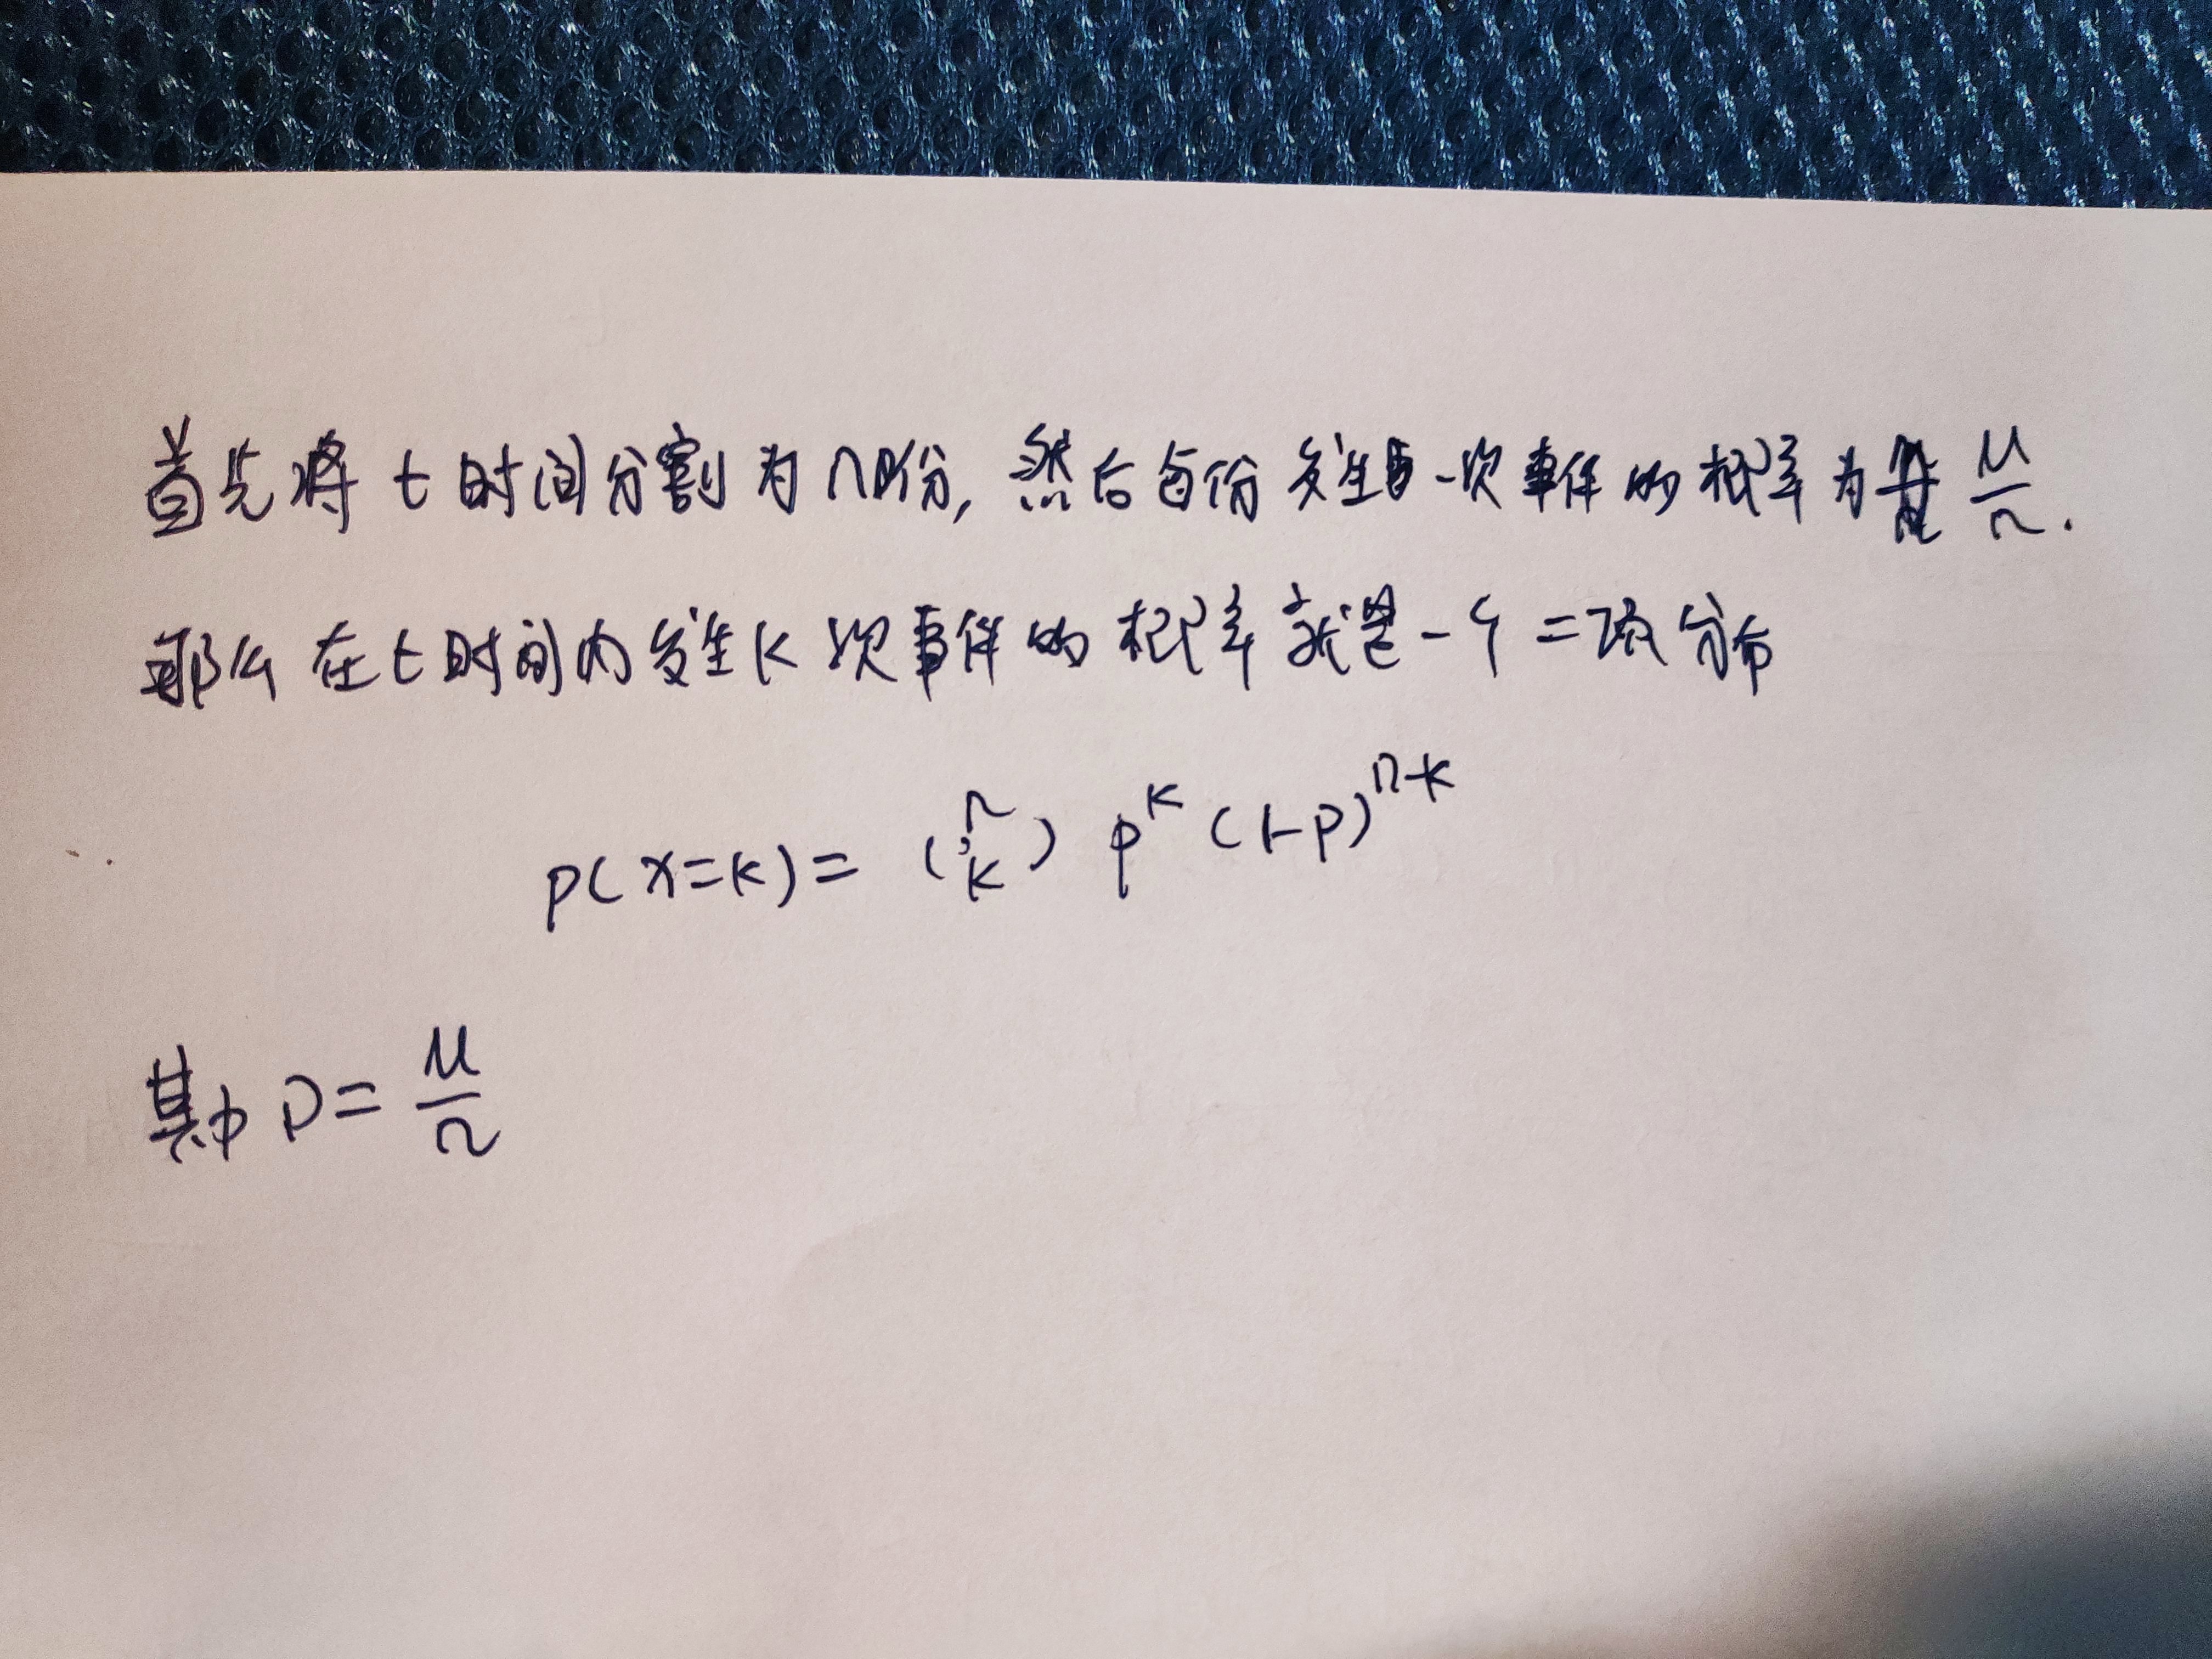 首先将t时间分割为n份,然后每份发生一次事件的概率为 μ/n.
那么在t时间内发生k次事件的概率就是一个二项分布
p(x=k)= (n k) p^k (1-p)^n-k
其中 p= μ/n